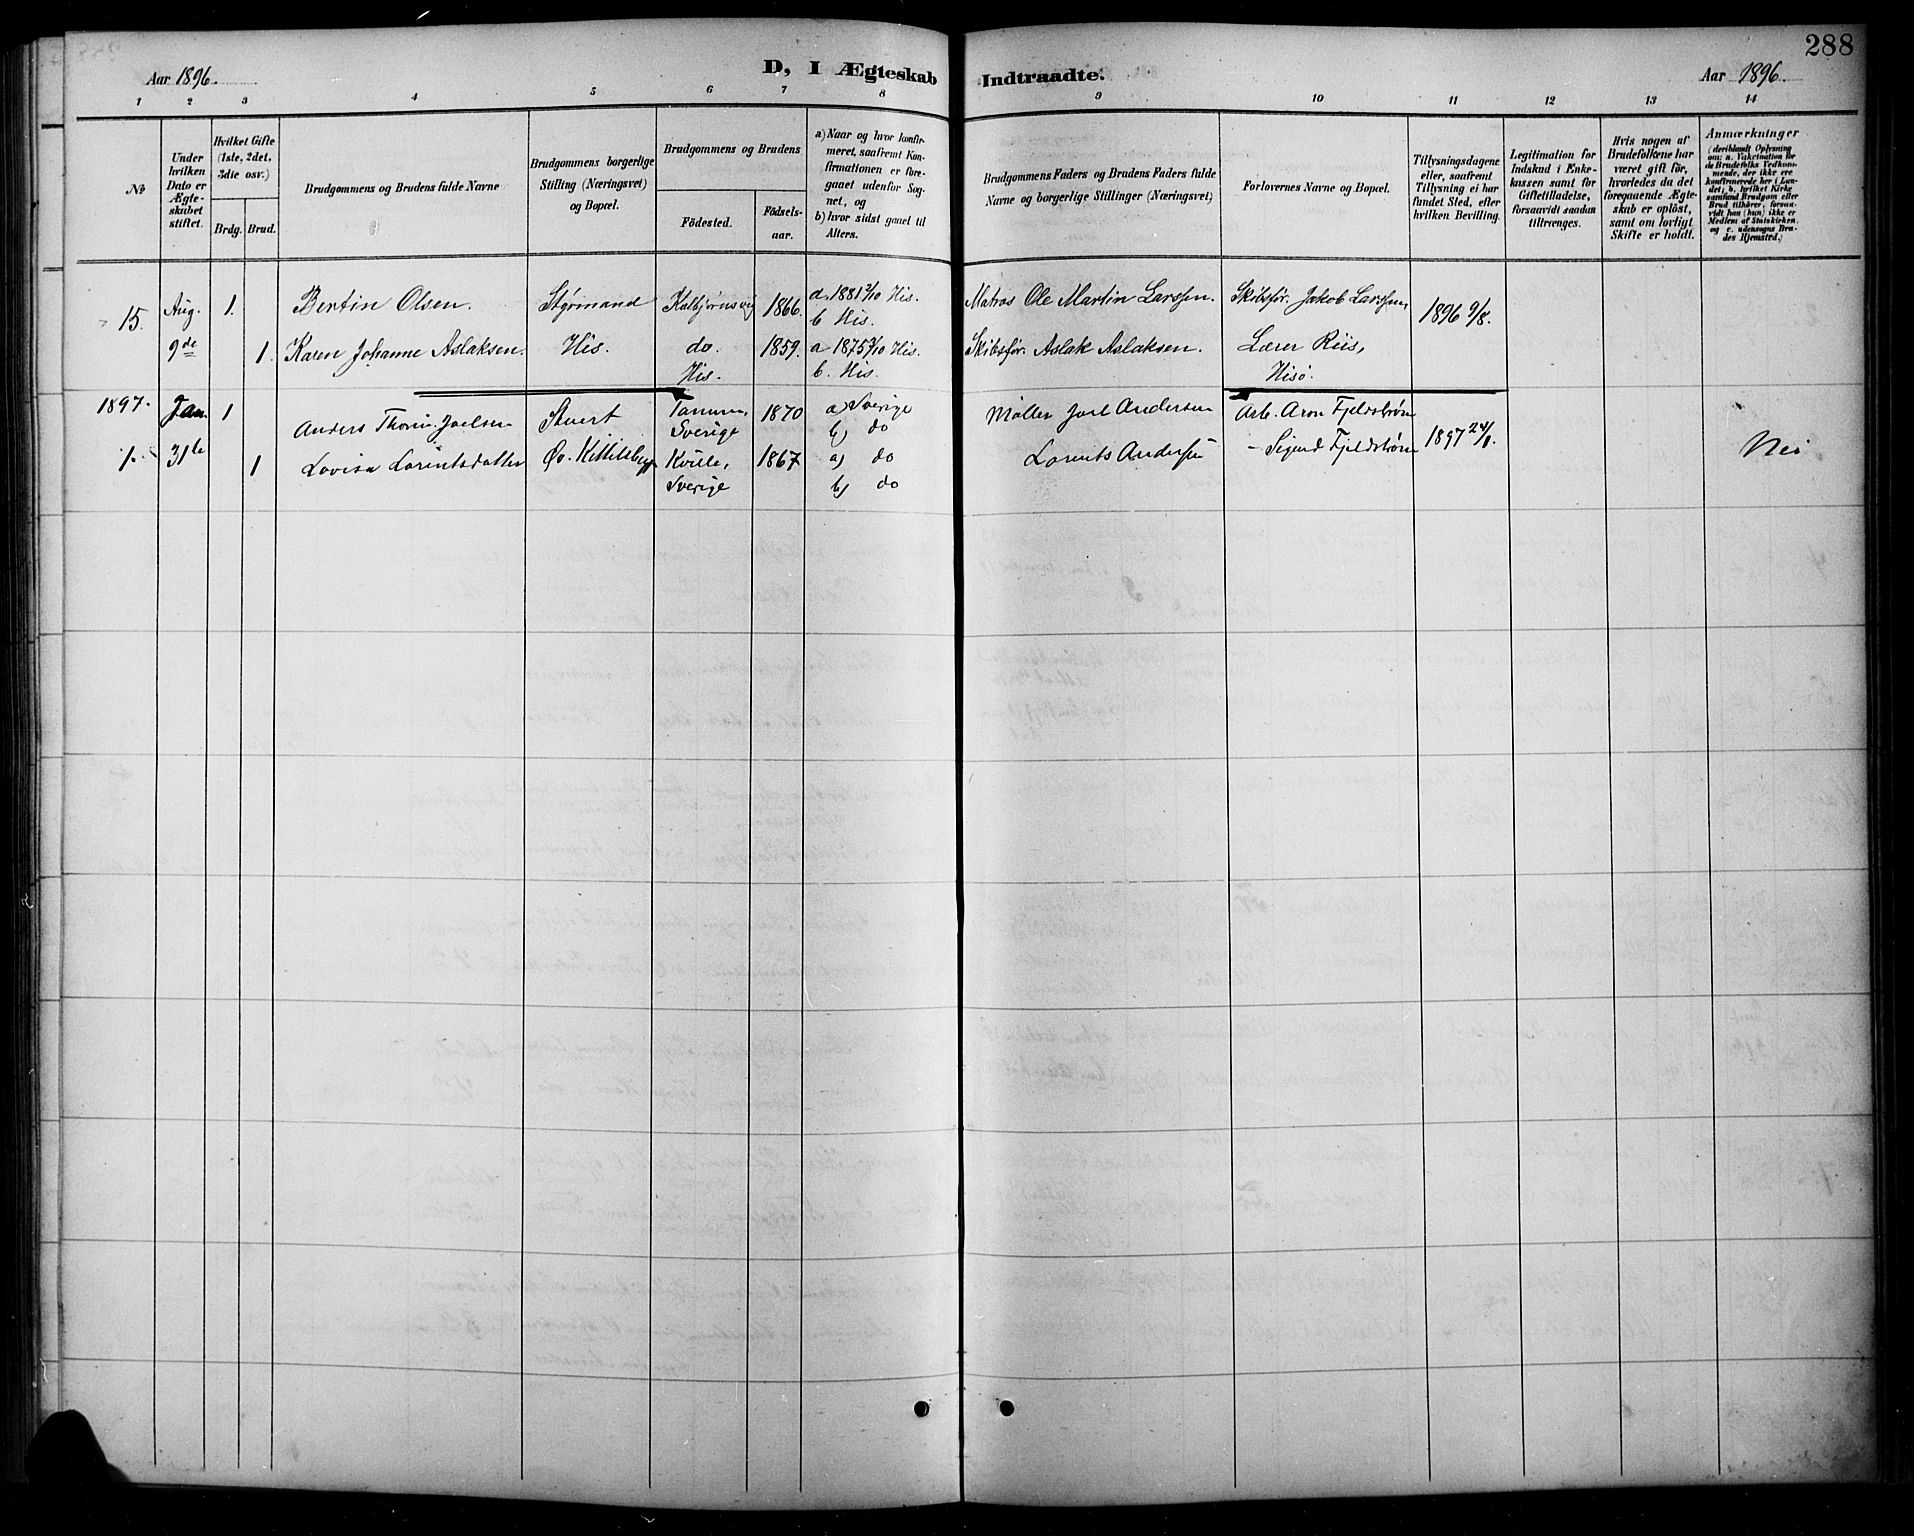 288
Aar 1896.
D, I Ægteskab Indtraadte.
Aar 1896.
1 2 3 4 5 6 7 8 9 10 11 12 13 14
No
Under hvilken Dato er Ægteskabet stiftet.
Hvilket Gifte (1ste, 2det, 3die osv.)
Brdg. Brud.
Brudgommens og Brudens fulde Navne
Brudgommens borgerlige Stilling (Næringsvei) og Bopæl.
Brudgommens og Brudens
Fødested.
Fødselsaar.
a) Naar og hvor konfirmeret, saafremt Konfirmationen er foregaaet udenfor Sognet, og
b) hvor sidst gaaet til Alters.
Brudgommens Faders og Brudens Faders fulde Navne og borgerlige Stillinger (Næringsvei)
Forlovernes Navne og Bopæl.
Tillysningsdagene eller, saafremt Tillysning ei har fundet Sted, efter hvilken Bevilling.
Legitimation for Indskud i Enkekassen samt for Giftetilladelse, forsaavidt saadan tiltrænges.
Hvis nogen af Brudefolkene har været gift før, hvorledes da det foregaaende Ægteskab er opløst, samt om lovligt Skifte er holdt.
Anmærkninger
(deriblandt Oplysning om: a. Vakcination for de Brudefolks Vedkommende, der ikke ere konfirmerede her i Landet; b. hvilket Kirkesamfund Brudgom eller Brud tilhører, forsaavidt han (hun) ikke er Medlem af Statskirken, og c. udensogns Brudes Hjemsted.)
15. Aug. 1. Bertin Olsen. Styrmand Kalbjørnsvig 1866. a. 1881 2/10 His. Matros Ole Martin Larssen. Skibsfør. Jakob Larssen, 1896 9/8.
b His.
9de 1. Karen Johanne Aslaksen. His. do. 1859. a 1875 3/10 His. Skibsfør. Aslak Aslaksen. Lærer Riis,
His. b. His. Hisø.
1897. Jan 1 Anders Thorin Joelsen Stuert Tanum, 1870 a) Sverige Møller Joel Andersen Arb. Aron Fjeldstrøm
Sverige b) do
1. 31te 1 Lovisa Lorintsdatter Øv. Kittelsby Kville, 1867 a) do Lorents Andersen - Sigurd Fjeldstrøm 1897 24/1. Nei
Sverige b) do